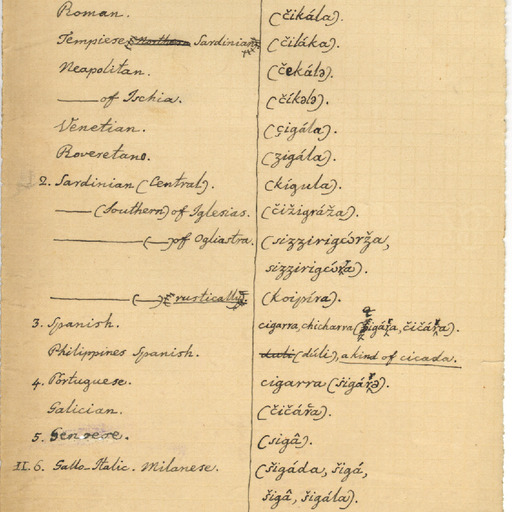 Roman. (čikála).
Tempiese (Northern Sardinian) (čiláka).
Neapolitan. (čekálə).
—— of Ischia. (číkələ).
Venetian. (çigála).
Roveretano. (zigála).
2. Sardinian (Central). (kígula).
—— (Southern) of Iglesias. (čižigráža).
—— (—) of Ogliastra. (sizzirigórža,
sizzirigóra).
—— (—) rustically. (koipíra).
3. Spanish. cigarra, chicharra
Philippines Spanish. duli (dúli), a kind of cicada.
4. Portuguese. cigarra
Galician. (čičára).
5. (sigâ).
II. 6. Gallo-Italic. Milanese. (šigáda, šigá,
šigâ, šigála).